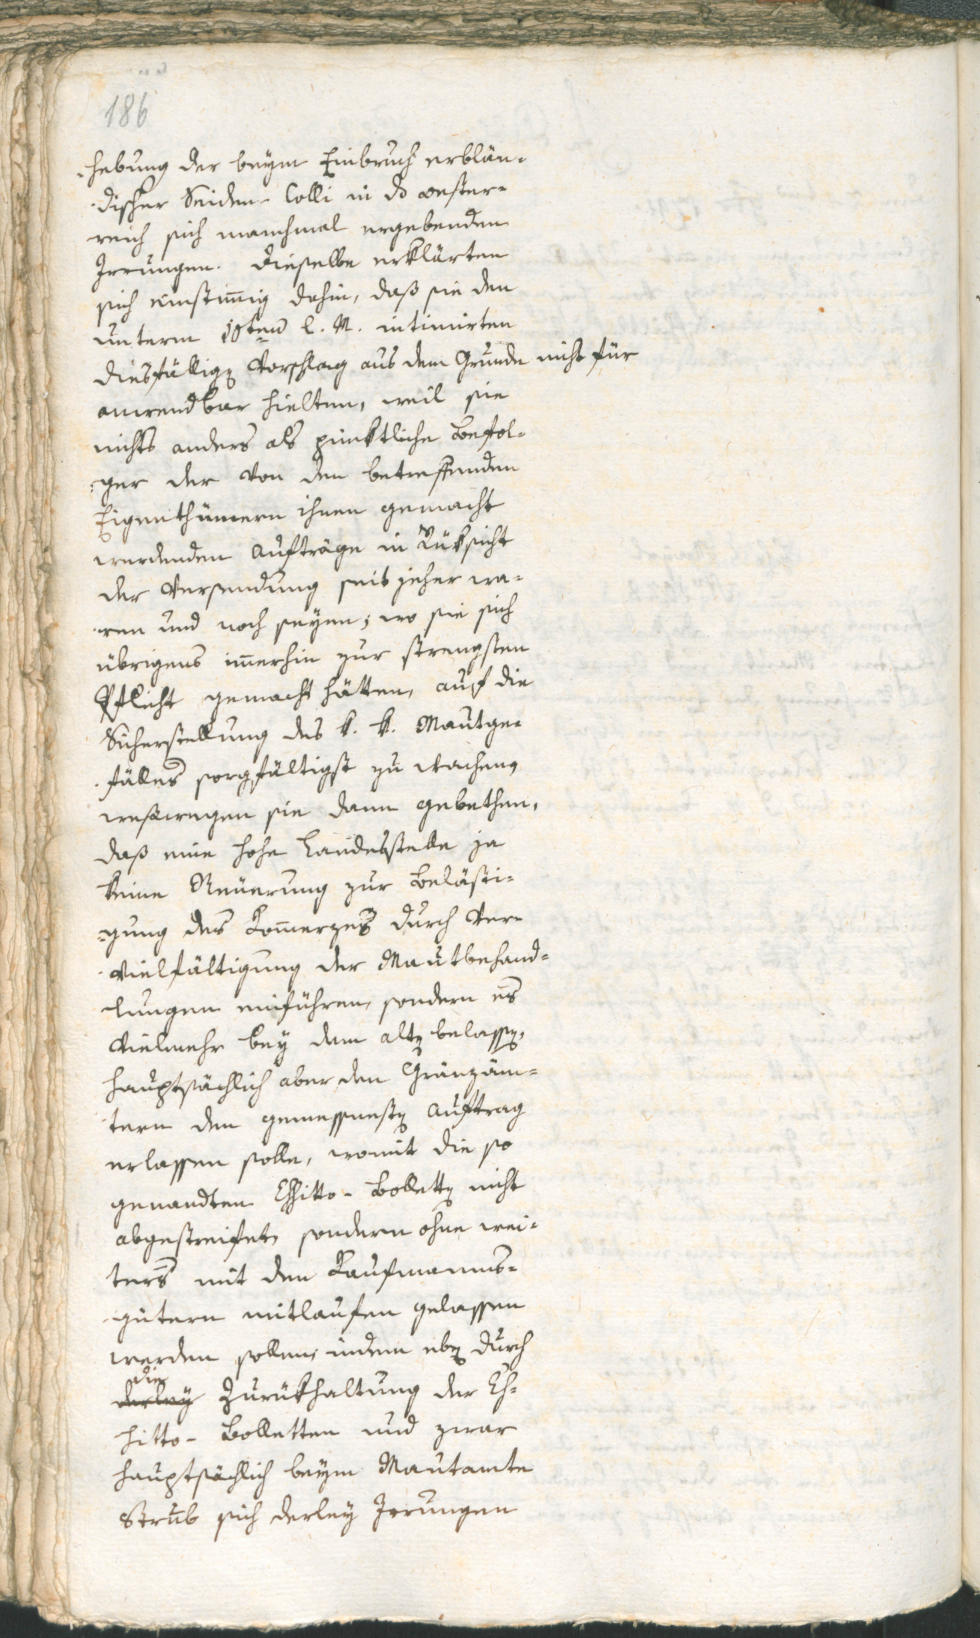 186
-hebung der beym Einbruch erblän-
discher Seiden-Colli in do oester-
reich sich manchmal ergebenden
Irrungen. Dieselbe erklärten
sich einstimig dahin, daß sie den
unterm 10ten l. M. intimirten
diesfällig Vorschlag aus dem Grunde nicht für
anwendbar hielten, weil sie
nichts anders als pünktliche Befol-
ger der von den betreffenden
Eigenthümern ihnen gemacht
werdenden Aufträge in Rüksicht
der Versendung seit jeher wa-
ren und noch seyen; wo sie sich
übrigens imerhin zur strengsten
Pflicht gemacht hätten, auf die
Sicherstellung des k. k. Mautge-
fälles sorgfältigst zu wachen,
weßwegen sie dann gebethen,
daß eine hohe Landesstelle ja
keine Neuerung zur Belästi-
gung des Komerzes durch Ver-
vielfältigung der Mautbehand-
lungen einführen, sondern es
vielmehr bey dem alt belass,
hauptsächlich aber den Gränzäm-
tern den gemessenst Auftrag
erlassen solle, womit die so
genandten Essitto-Bollett nicht
abgestreifet, sondern ohne wei-
ters mit den Kaufmanns-
gütern mitlaufen gelassen
werden sollen, indem eb durch
die
derley Zurükhaltung der Es-
sitto-Bolletten und zwar
hauptsächlich beym Mautamte
Strub sich derley Irrungen